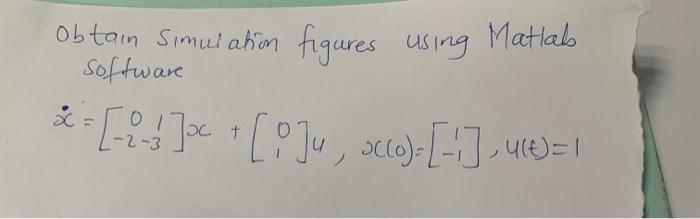 Obtain Simulation figures using Matlab
Software
ẋ = [0 1; -2 -3]x + [0; 1]u, x(0)=[1; -1], u(t)=1